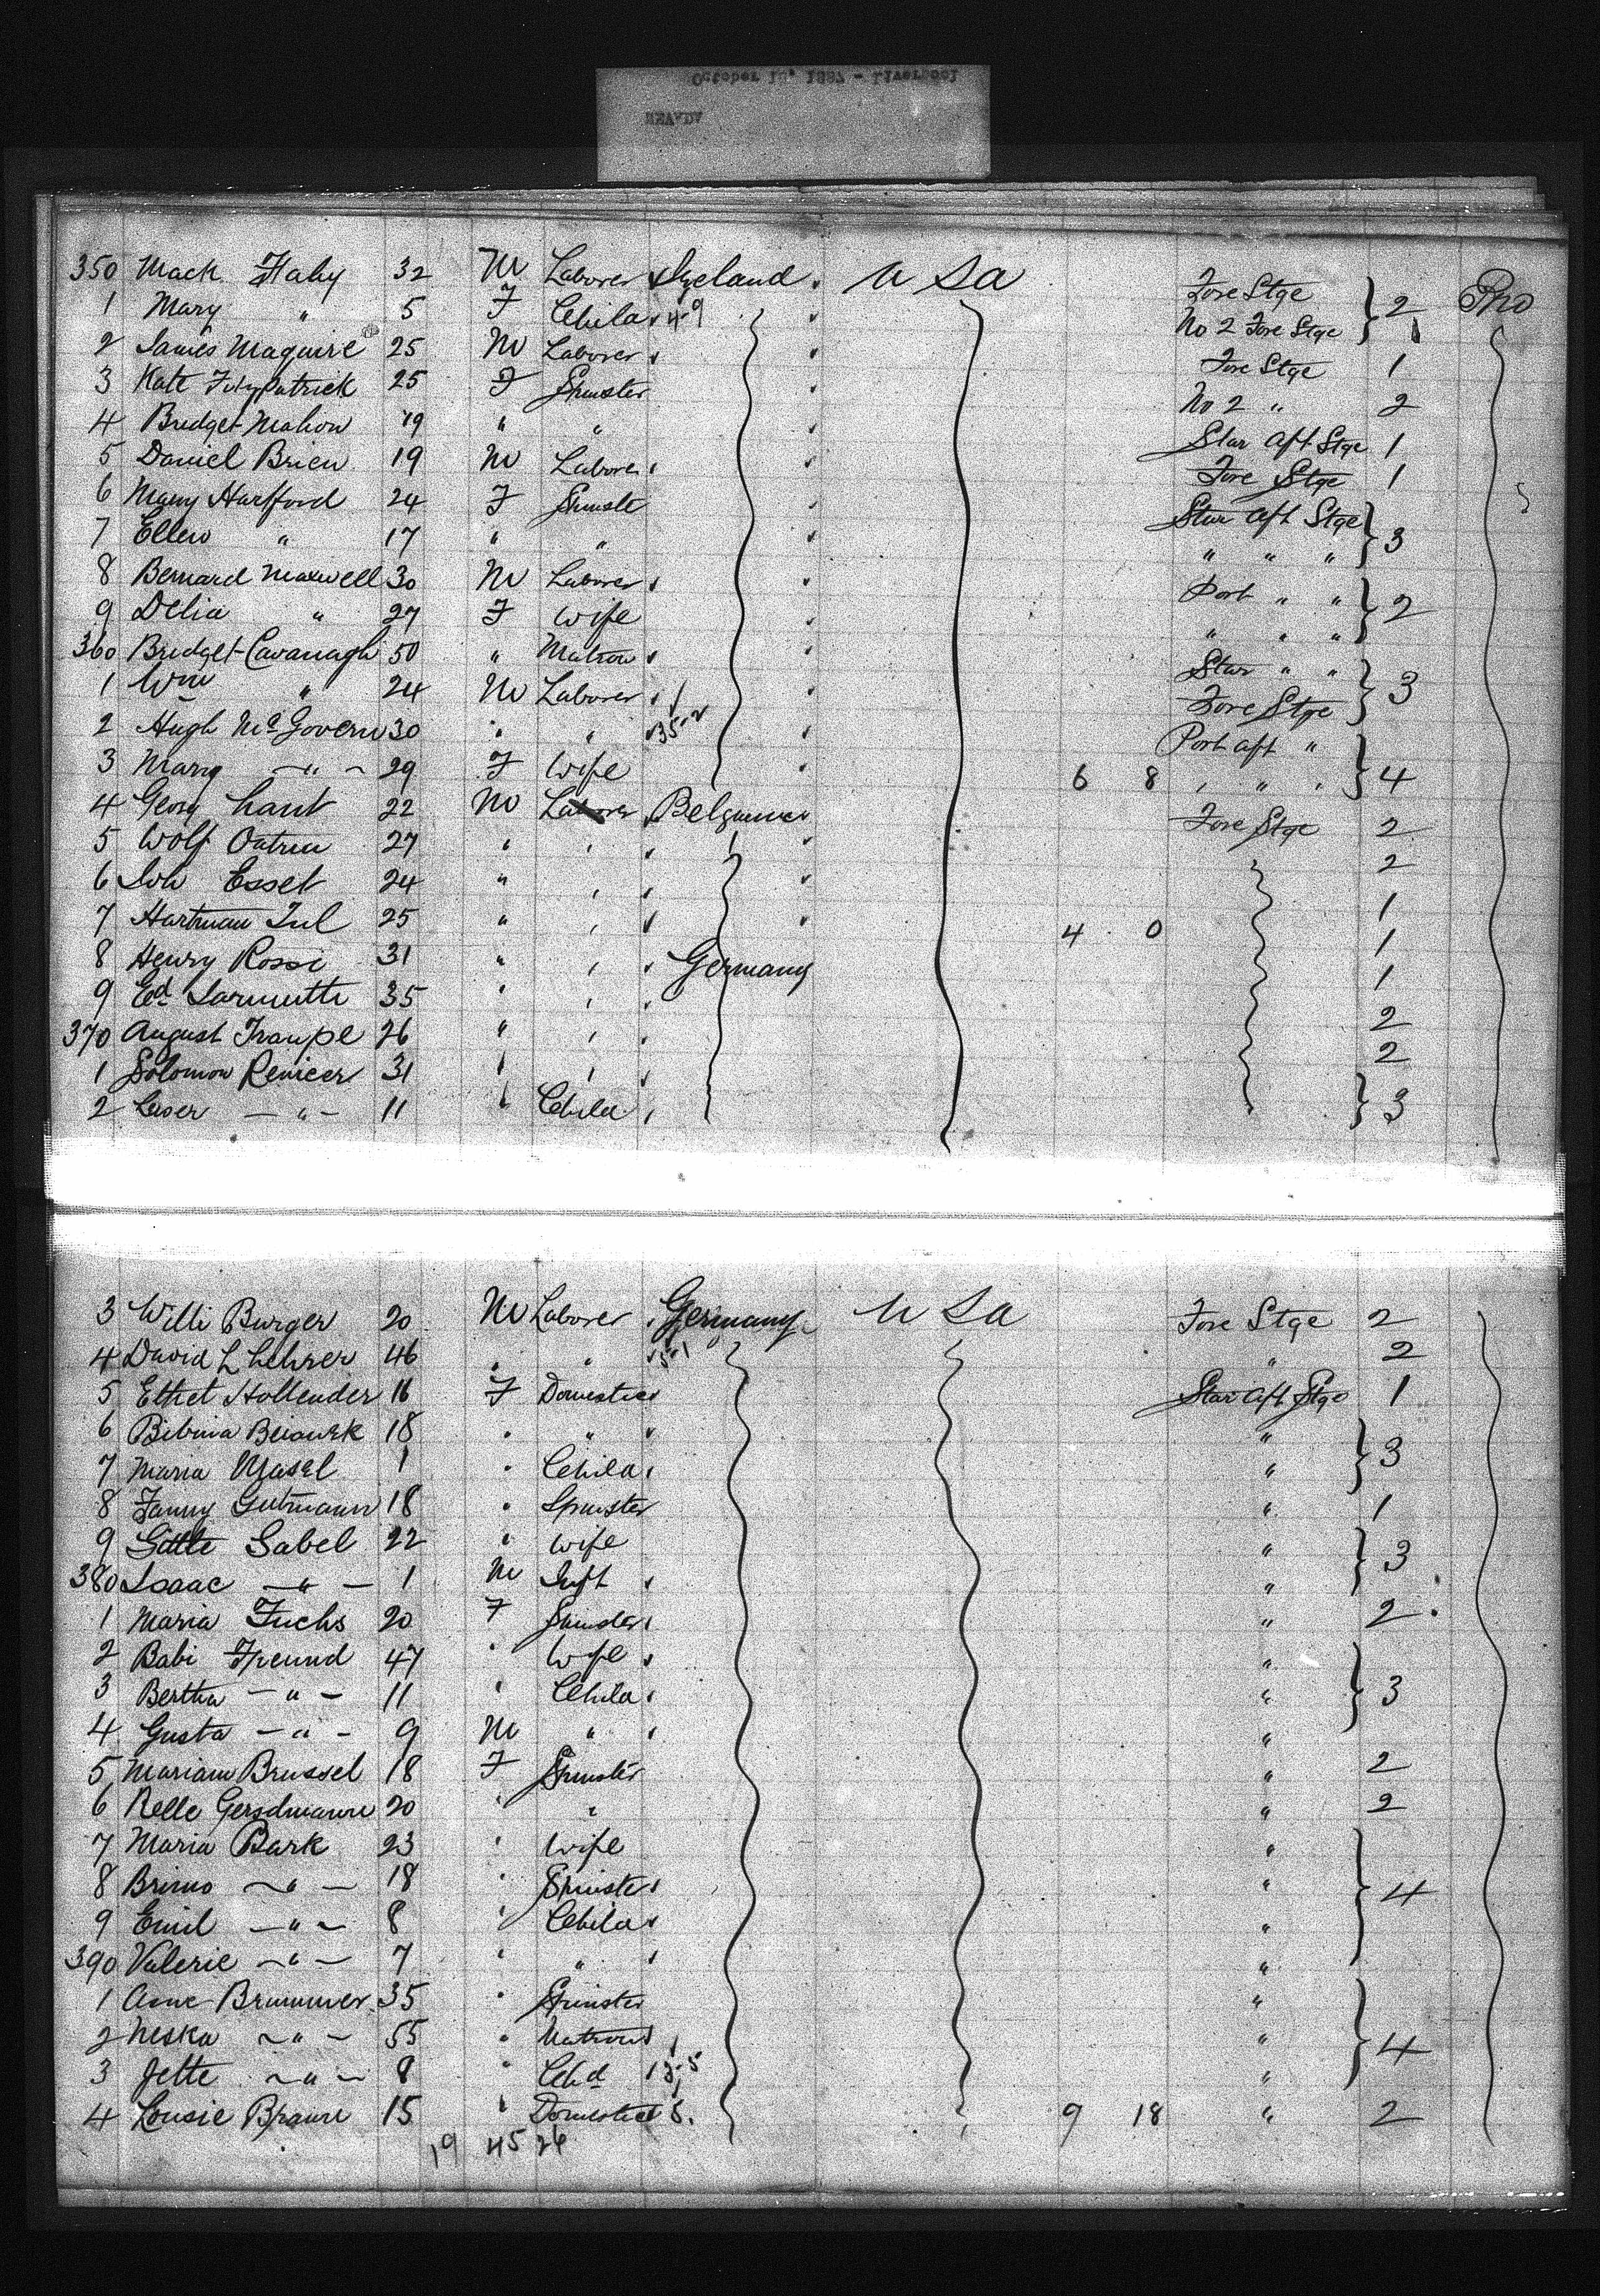 October 18, 1887 - Liverpool
350 Mack Flahy 32 M Laborer Ireland U S a Fore Stge 2 Pro
1 Mary " 5 F Child 4-9 No 2 Fore Stge
2 James Maguire 25 M Laborer Fore Stge 1
3 Kate Fitzpatrick 25 F Spinster No 2 " 2
4 Bridget Mahon 19 " " Star aft Stge 1
5 Daniel Brien 19 M Laborer Fore Stge 1
6 Mary Hartford 24 F Spinste Star aft Stge 3
7 Ellen " 17 " " " " "
8 Bernard Maxwell 30 M Laborer Port " " 2
9 Delia " 27 F Wife " " "
360 Bridget Cavanagh 50 " Matron Star " " 3
1 Wm " 24 M Laborer Fore Stge
2 Hugh McGovern 30 " " 35-2 Port aft " 4
3 Mary - " - 29 F Wife 6 8 " " "
4 Georg 22 M Laborer Belgium Fore Stge 2
5 Wolf 27 " " 2
6 Esset 24 " " 1
7 Hartman Jul 25 " " 4 0 1
8 Henry Rossi 31 " " Germany 1
9 Ed 35 " " 2
370 August Traupe 26 " " 2
1 Solomon Renicer 31 " "
2 Leser - " - 11 " Child 3
3 Willi Burger 20 M Laborer Germany U S a Fore Stge 2
4 David L Lehrer 46 " " 5-1 " 2
5 Ethet Hollender 16 F Domestic Star aft Stge 1
6 Bibina 18 " " " 3
7 Maria 1 " Child "
8 Fanny Gutmann 18 " Spinster " 1
9 Gitte Sabel 22 " Wife " 3
380 Isaac - " - 1 M Inft "
1 Maria Fuchs 20 F Spinster " 2
2 Babi Freund 47 " Wife " 3
3 Bertha - " - 11 " Child "
4 Gusta - " - 9 M " "
5 Mariam Brussel 18 F Spinster " 2
6 Relle Gersdmann 20 " " " 2
7 Maria Bark 23 " Wife " 4
8 Bruno - " - 18 " Spinster "
9 Emil - " - 8 " Child "
390 Valerie - " - 7 " " "
1 Anne Brummer 35 " Spinster " 4
2 Neska - " - 55 " Matron "
3 Jette - " - 8 " Chd 13-5 "
4 Lousie Braun 15 " Domestic 5. 9 18 " 2
19 45 26